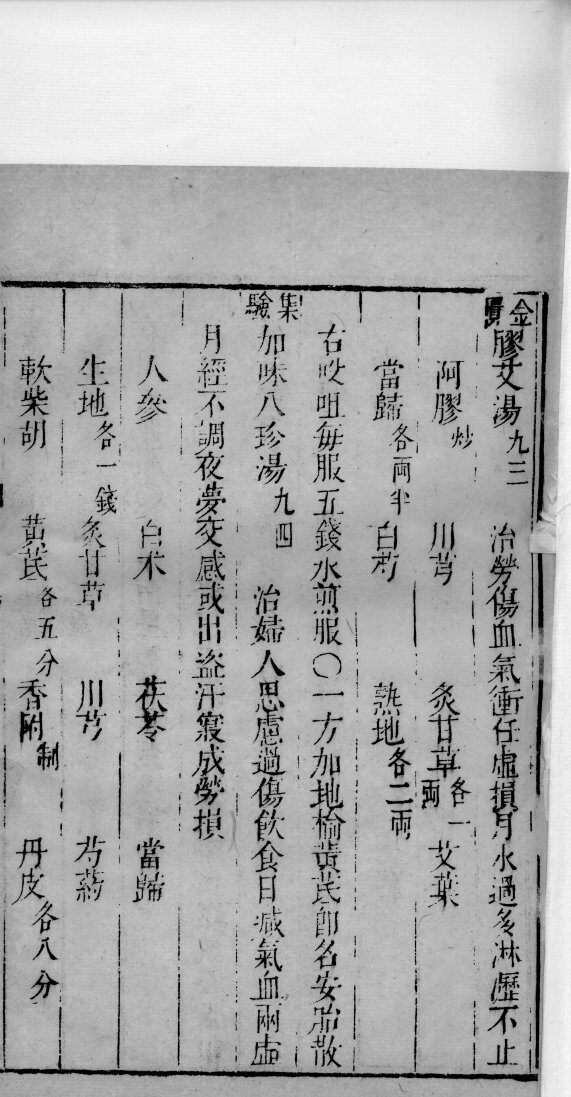 金匱膠艾湯九三　治勞傷血氣衝任虛損月水過多淋瀝不止
阿膠炒　川芎　炙甘草各一兩　艾葉
當歸各兩半　白芍　熟地各二兩
右㕮咀每服五錢水煎服〇一方加地榆黃芪即名安胎散
集驗加味八珍湯九四　治婦人思慮過傷飲食日減氣血兩虛
月經不調夜夢交感或出盜汗寢成勞損
人參　白朮　茯苓　當歸
生地各一錢　炙甘草　川芎　芍藥
軟柴胡　黃芪各五分　香附制　丹皮各八分